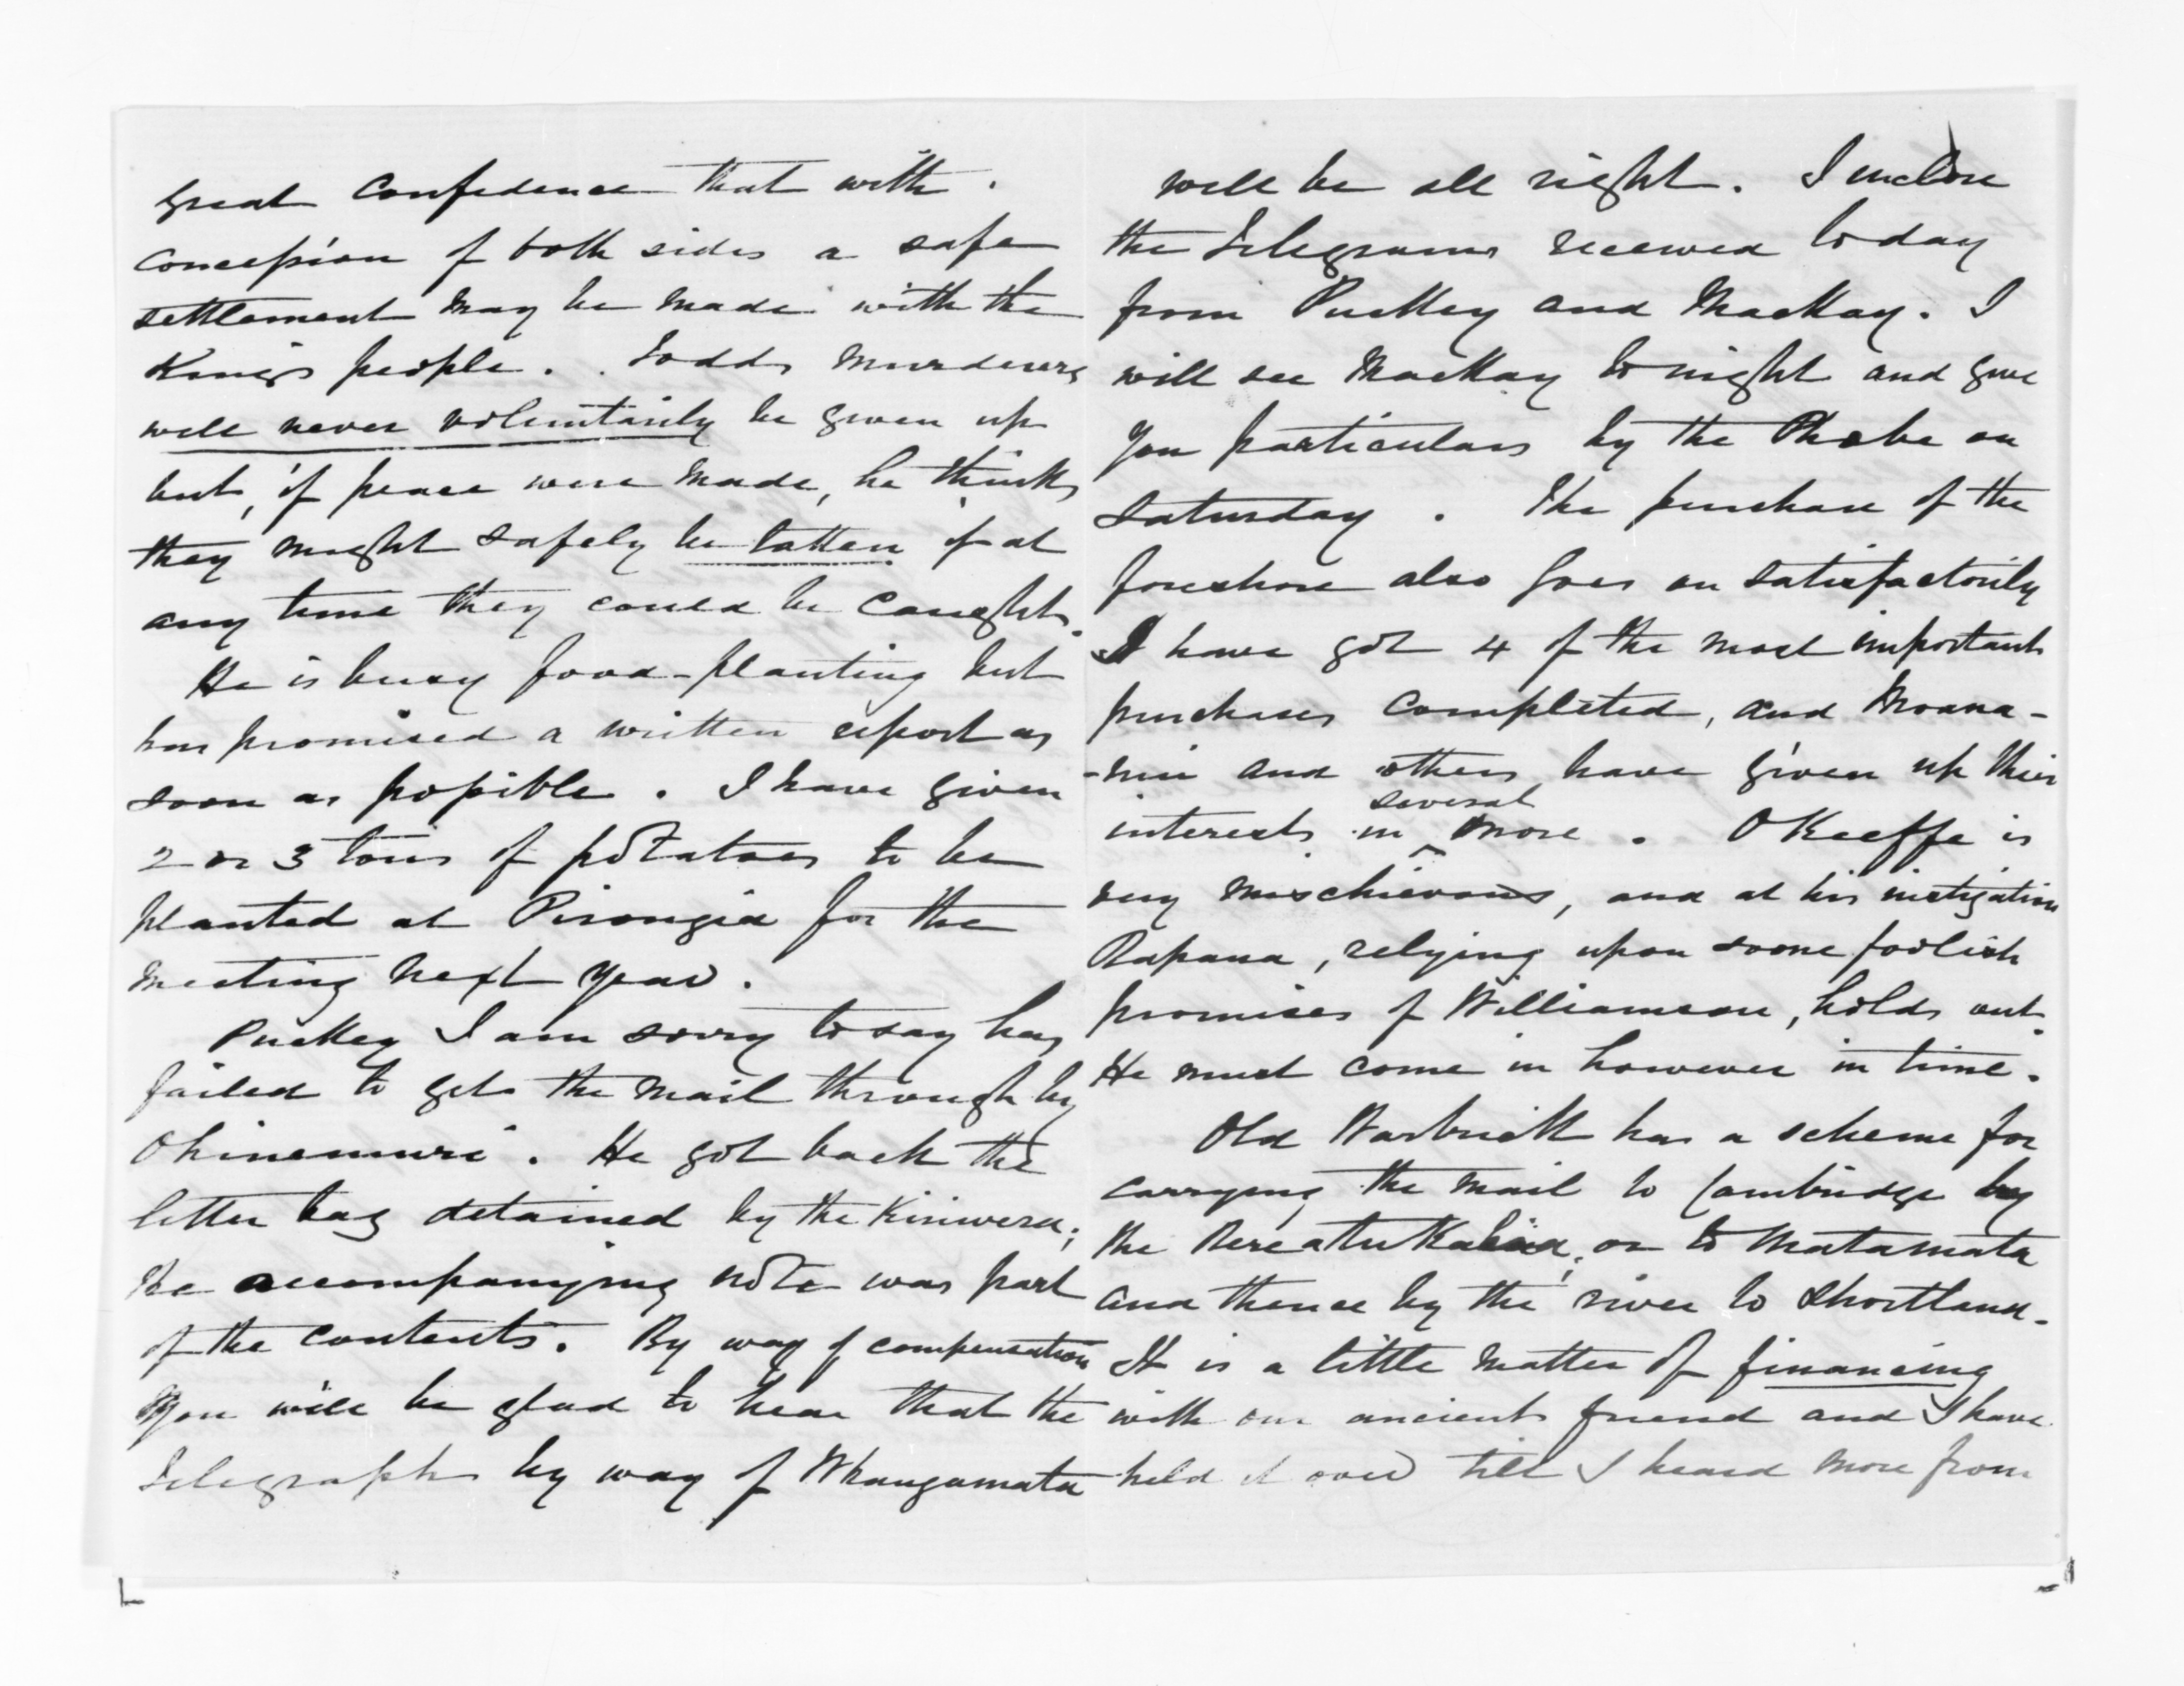 great confidence that with
concession of both sides a safe
settlement may be made with the
King's people. Todds murderers
will never voluntarily be given up
but, if peace were made, he thinks
they might safely be taken if at
any time they could be caught.
He is busy food-planting but
has promised a written report as
soon as possible. I have given
2 or 3 tons of potatoes to be
planted at Pirongia for the
meeting next year.
Puckey I am sorry to say has
failed to get the mail through by
Ohinemuri. He got back the
letter bag detained by the Kiriwera;
the accompanying note was part
of the contents. By way of compensation
you will be glad to hear that the
Telegraph by way of Whangamata
will be all right. I enclose
the Telegrams received today
from Puckey and Mackay. I
will see Mackay tonight and give
you particulars by the Phoebe on
Saturday. The purchase of the
foreshore also goes on satisfactorily
I have got 4 of the most important
purchases completed, and Moana-
-nui and others have given up their
interests in several more. OKeeffe is
very mischievous, and at his instigation
Rapana, relying upon some foolish
promises of Williamson, holds out.
He must come in however in time.
Old Warbrick has a scheme for
carrying the mail to Cambridge by
the, or to Matamata
and thence by the river to Shortland.
It is a little matter of financing
with our ancient friend and I have
held it over till I heard more from